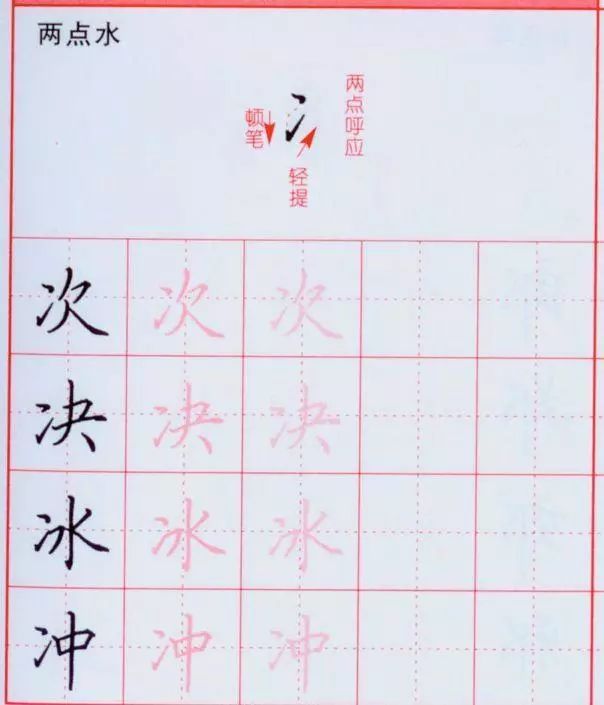 两点水
冫
顿笔
轻提
两点呼应
次 次 次
决 决 决
冰 冰 冰
冲 冲 冲